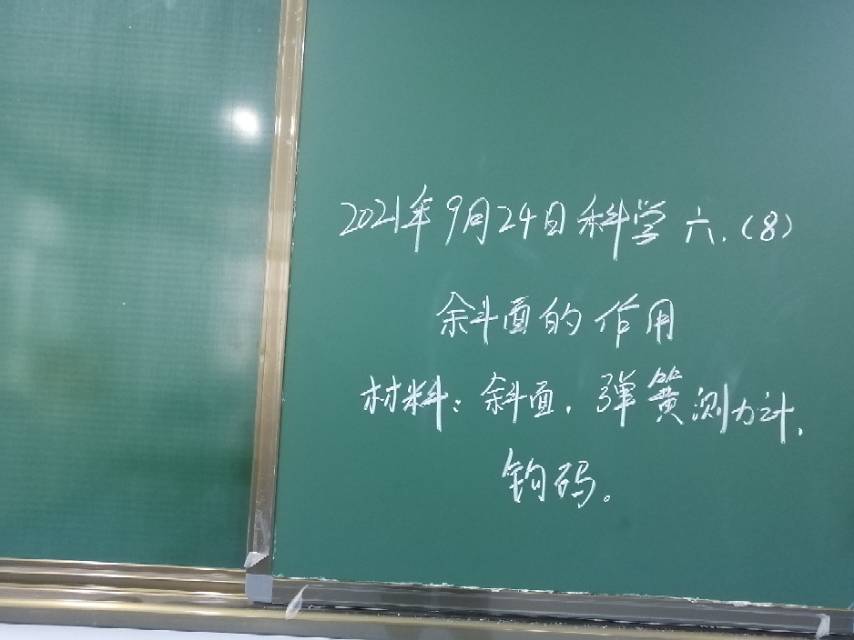 2021年9月24日科学六.(8)
斜面的作用
材料:斜面.弹簧测力计.
钩码。